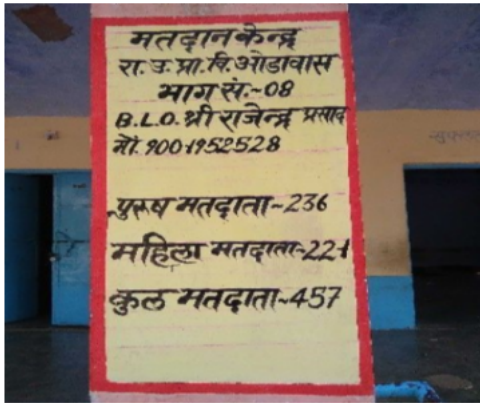 मतदान केन्द्र
रा. उ. प्रा. वि. ओडावास
भाग सं.-08
B.L.O. श्री राजेन्द्र प्रसाद
मो. 9001952528
पुरुष मतदाता-236
महिला मतदाता-221
कुल मतदाता-457